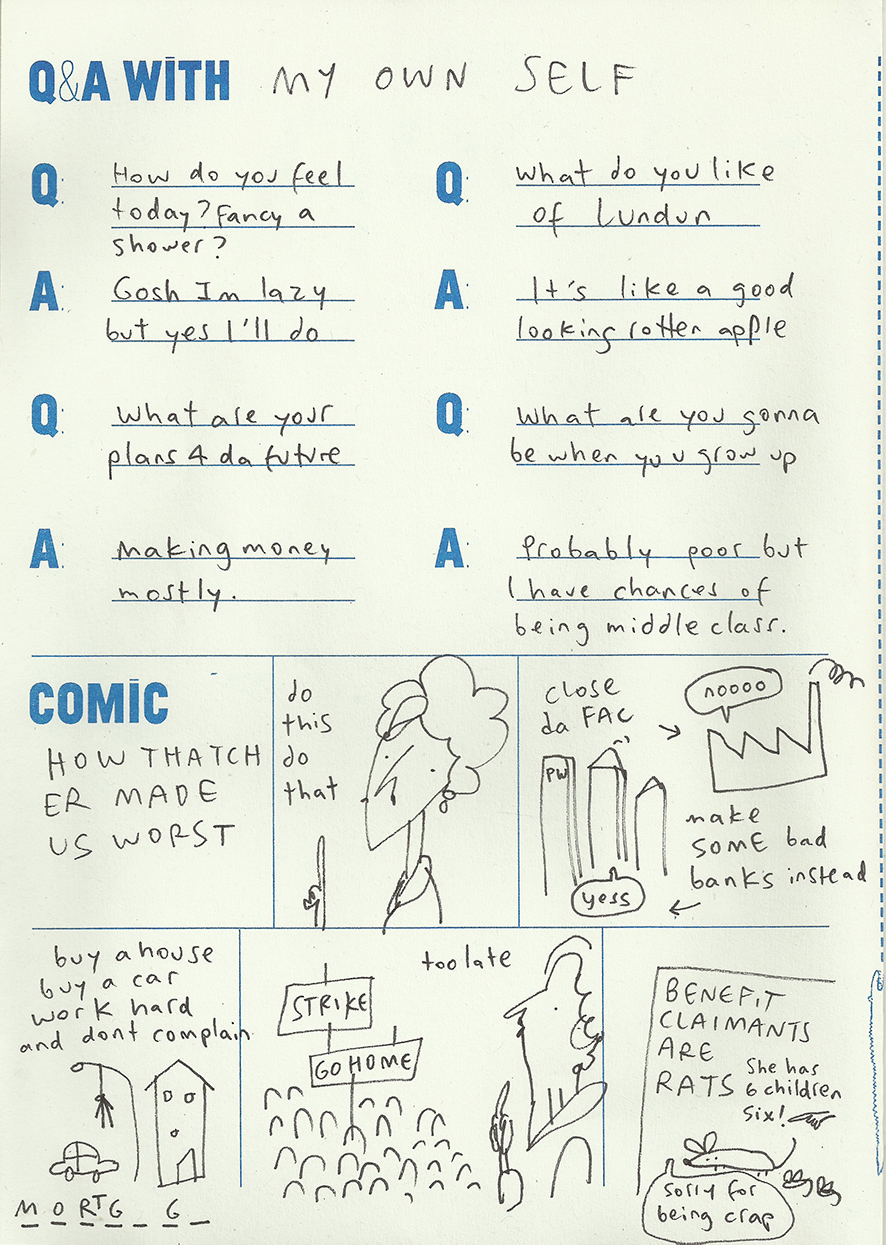 Q&A WITH MY OWN SELF
Q: How do you feel
today? Fancy a
shower?
A: Gosh Im lazy
but yes I'll do
Q: What are your
plans 4 da future
A: making money
mostly.
Q: What do you like
of Lundun
A: It's like a good
looking rotten apple
Q: What are you gonna
be when you grow up
A: Probably poor but
I have chances of
being middle class.
COMIC
HOW THATCH
ER MADE
US WORST
do
this
do
that
close
da FAC
noooo
PW
make
SOME bad
banks instead
yess
buy a house
buy a car
work hard
and dont complain
M O RT G _ G _
too late
STRIKE
GO HOME
BENEFIT
CLAIMANTS
ARE
RATS
She has
6 children
six!
sorry for
being crap